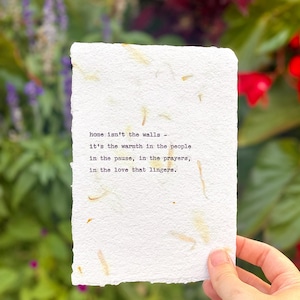 home isn't the walls -
it's the warmth in the people
in the pause, in the prayers,
in the love that lingers.